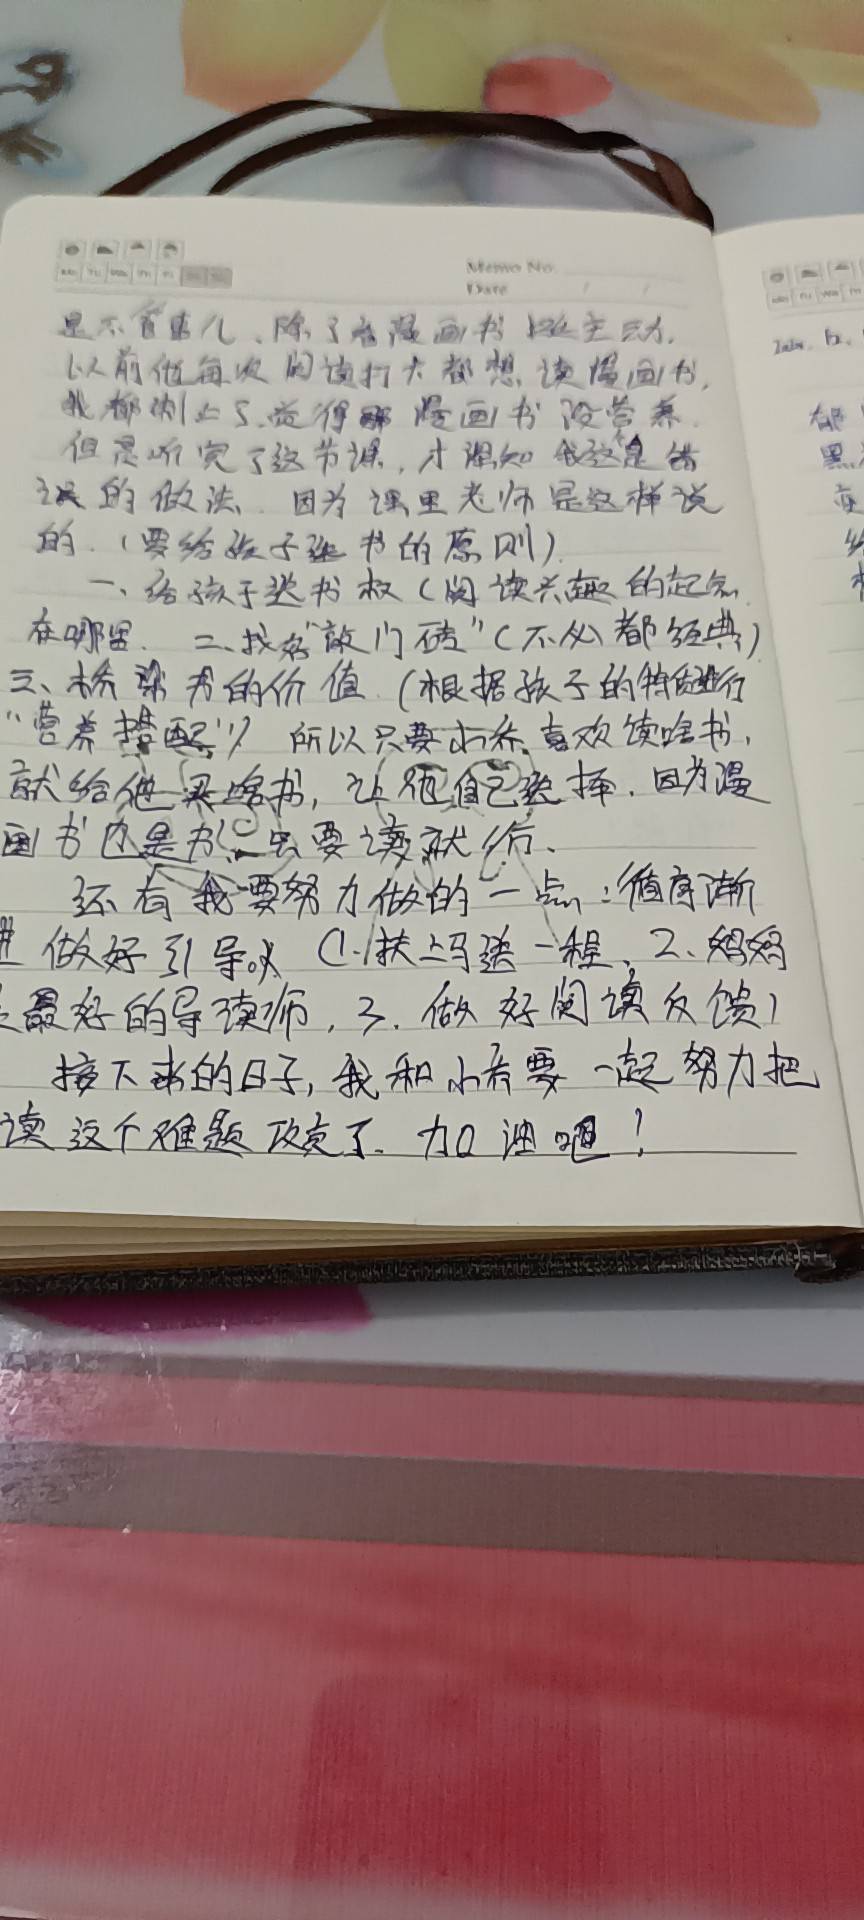 Memo No.
Date / /
是不管事儿、除了看漫画书 主动.
以前他每次阅读打卡都想读漫画书,
我都 觉得 漫画书没营养.
但是听完了这节课,才得知我这是错
误的做法. 因为课里老师是这样说
的.(要给孩子选书的原则)
一、给孩子选书权(阅读兴趣的起点
在哪里. 二、找好"敲门砖"(不必都经典)
三、桥梁书的价值.(根据孩子的特质进行
"营养搭配")所以只要小乔喜欢读啥书,
就给他买啥书,让他自己选择.因为漫
画书也是书.只要读就行.
还有我要努力做的一点:循序渐
进 做好引导。(1.扶上马送一程、2、妈妈
是最好的导读师,3.做好阅读反馈)
接下来的日子,我和小乔要一起努力把
读这个难题攻克了.加油吧!